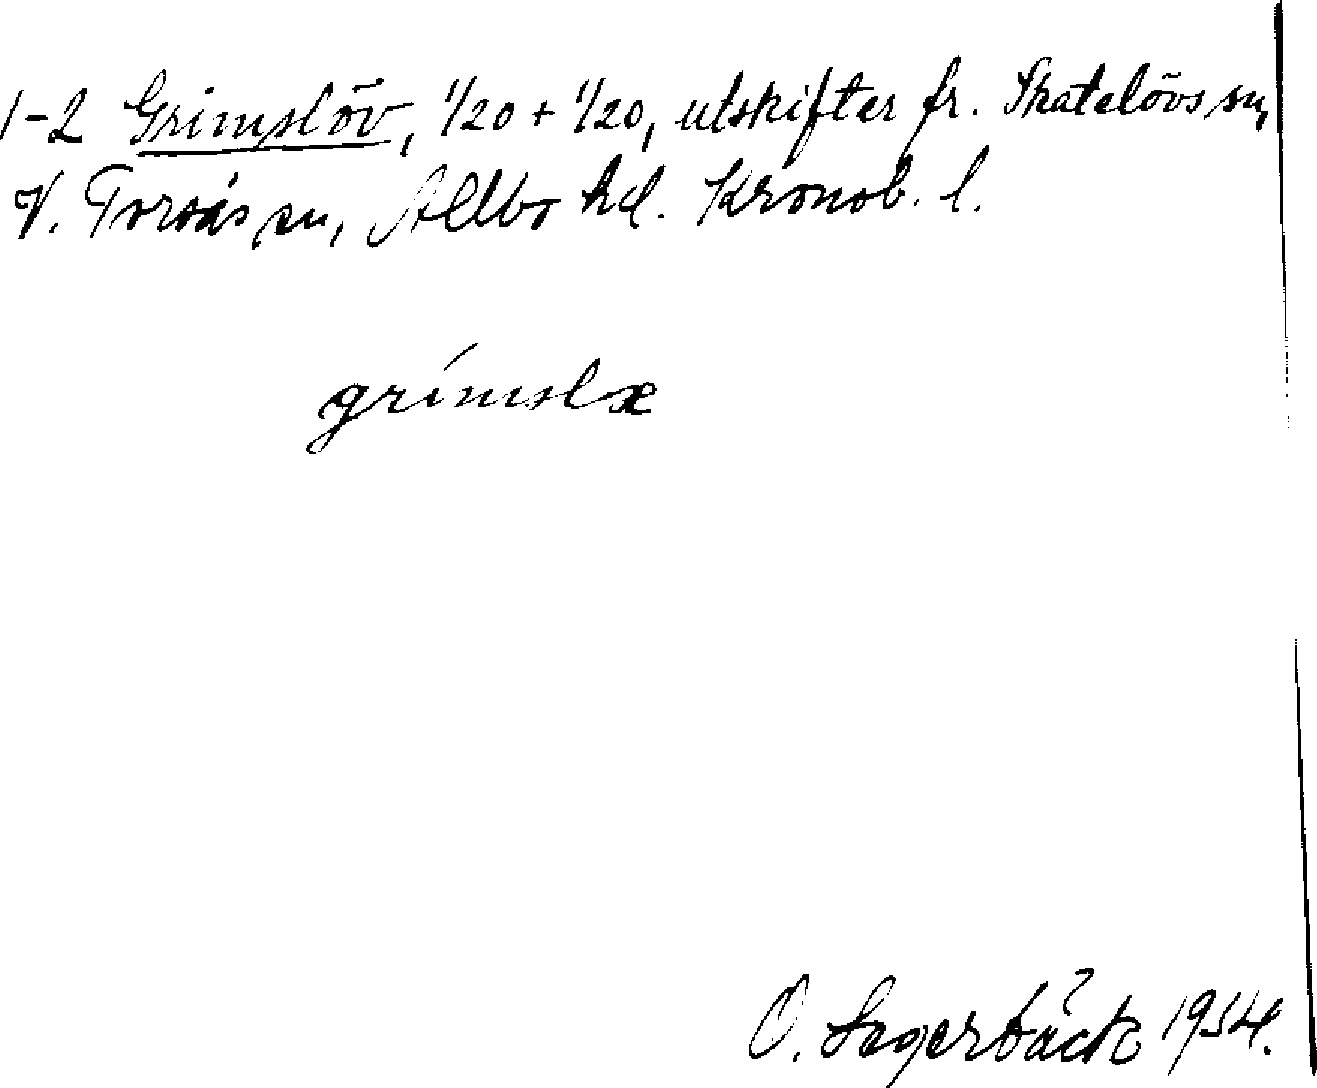 1-2 Grimslöv, 1/20 + 1/20, utskifter fr. Skatelövs sn,
V. Torsås sn, Allbo hd. Kronob. l.
grímslæ
O. Sagerbäck 1954.